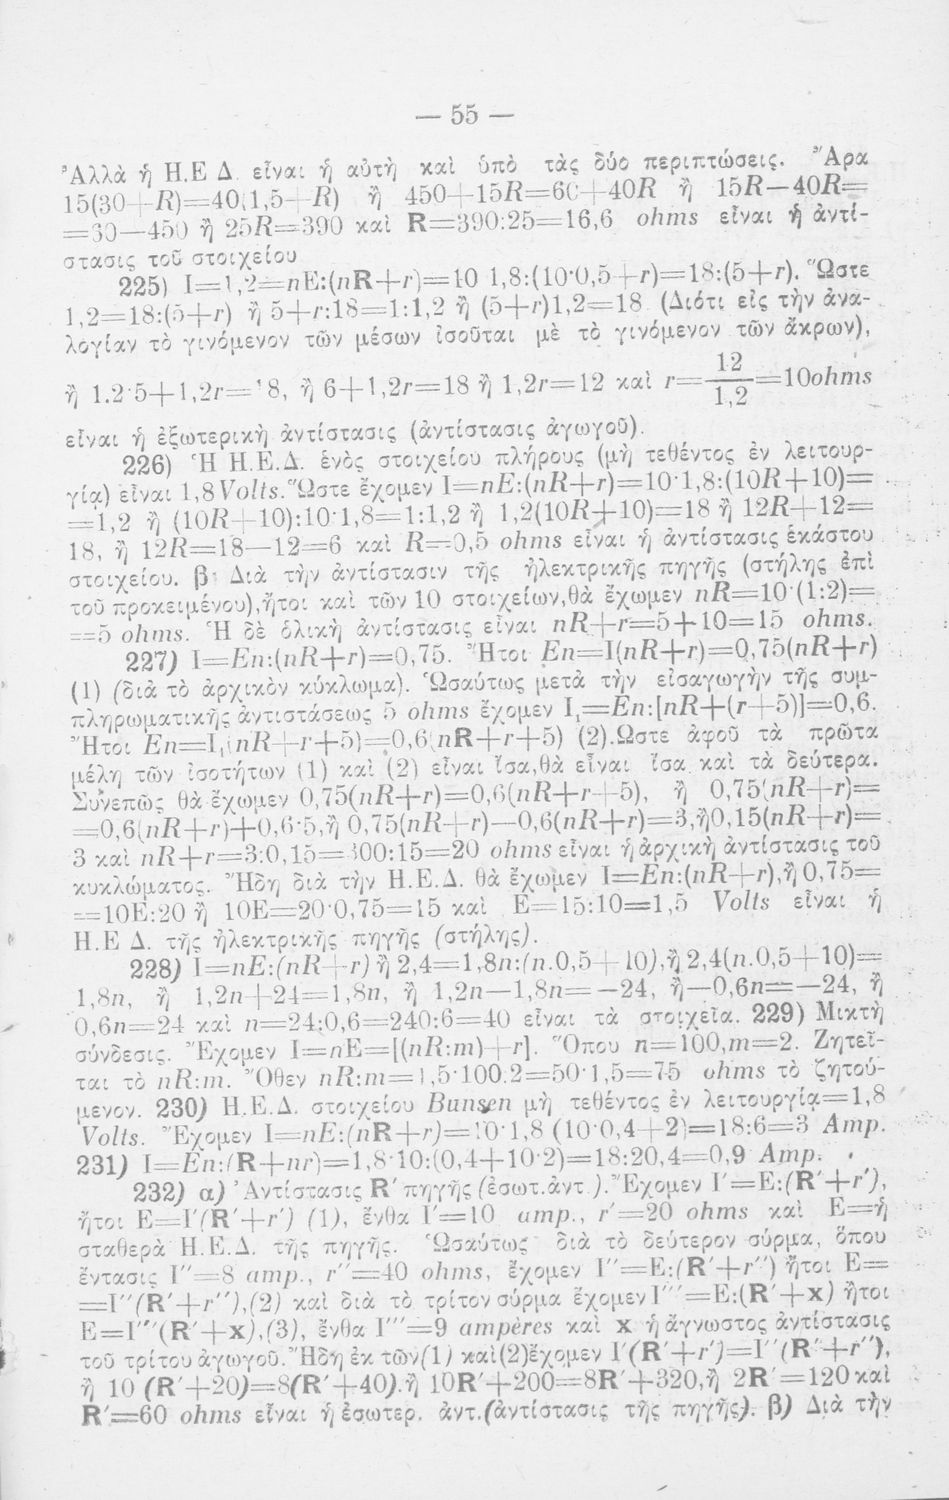 — 55 —
Ἀλλὰ ἡ Η.Ε Δ. εἶναι ἡ αὐτὴ καὶ ὑπὸ τὰς δύο περιπτώσεις. Ἄρα
15(30+R)=40(1,5+R) ἢ 450+15R=60+40R ἢ 15R—40R=
=60—450 ἢ 25R=390 καὶ R=390:25=16,6 ohms εἶναι ἡ ἀντί-
στασις τοῦ στοιχείου
225) I=1,2=nE:(nR+r)=10 1,8:(10·0,5+r)=18:(5+r). Ὥστε
1,2=18:(5+r) ἢ 5+r:18=1:1,2 ἢ (5+r)1,2=18 (Διότι εἰς τὴν ἀνα-
λογίαν τὸ γινόμενον τῶν μέσων ἰσοῦται μὲ τὸ γινόμενον τῶν ἄκρων),
ἢ 1.2·5+1,2r=18, ἢ 6+1,2r=18 ἢ 1,2r=12 καὶ r=12/1,2=10ohms
εἶναι ἡ ἐξωτερικὴ ἀντίστασις (ἀντίστασις ἀγωγοῦ).
226) Ἡ Η.Ε.Δ. ἑνὸς στοιχείου πλήρους (μὴ τεθέντος ἐν λειτουρ-
γίᾳ) εἶναι 1,8 Volts. Ὥστε ἔχομεν I=nE:(nR+r)=10·1,8:(10R+10)=
=1,2 ἢ (10R+10):10·1,8=1:1,2 ἢ 1,2(10R+10)=18 ἢ 12R+12=
18, ἢ 12R=18—12=6 καὶ R=0,5 ohms εἶναι ἡ ἀντίστασις ἑκάστου
στοιχείου. β) Διὰ τὴν ἀντίστασιν τῆς ἠλεκτρικῆς πηγῆς (στήλης ἐπὶ
τοῦ προκειμένου), ἤτοι καὶ τῶν 10 στοιχείων, θὰ ἔχωμεν nR=10·(1:2)=
=5 ohms. Ἡ δὲ ὁλικὴ ἀντίστασις εἶναι nR+r=5+10=15 ohms.
227) I=En:(nR+r)=0,75. Ἤτοι En=I(nR+r)=0,75(nR+r)
(1) (διὰ τὸ ἀρχικὸν κύκλωμα). Ὡσαύτως μετὰ τὴν εἰσαγωγὴν τῆς συμ-
πληρωματικῆς ἀντιστάσεως 5 ohms ἔχομεν I₁=En:[nR+(r+5)]=0,6.
Ἤτοι En=I₁(nR+r+5)=0,6(nR+r+5) (2). Ὥστε ἀφοῦ τὰ πρῶτα
μέλη τῶν ἰσοτήτων (1) καὶ (2) εἶναι ἴσα, θὰ εἶναι ἴσα καὶ τὰ δεύτερα.
Συνεπῶς θὰ ἔχωμεν 0,75(nR+r)=0,6(nR+r+5), ἢ 0,75(nR+r)=
=0,6(nR+r)+0,6·5, ἢ 0,75(nR+r)—0,6(nR+r)=3, ἢ 0,15(nR+r)=
3 καὶ nR+r=3:0,15=300:15=20 ohms εἶναι ἡ ἀρχικὴ ἀντίστασις τοῦ
κυκλώματος. Ἤδη διὰ τὴν Η.Ε.Δ. θὰ ἔχωμεν I=En:(nR+r), ἢ 0,75=
=10E:20 ἢ 10E=20·0,75=15 καὶ E=15:10=1,5 Volts εἶναι ἡ
Η.Ε Δ. τῆς ἠλεκτρικῆς πηγῆς (στήλης).
228) I=nE:(nR+r) ἢ 2,4=1,8n:(n.0,5+10), ἢ 2,4(n.0,5+10)=
1,8n, ἢ 1,2n+24=1,8n, ἢ 1,2n—1,8n=—24, ἢ—0,6n=—24, ἢ
0,6n=24 καὶ n=24:0,6=240:6=40 εἶναι τὰ στοιχεῖα. 229) Μικτὴ
σύνδεσις. Ἔχομεν I=nE=[(nR:m)+r]. Ὅπου n=100, m=2. Ζητεῖ-
ται τὸ nR:m. Ὅθεν nR:m=1,5·100:2=50·1,5=75 ohms τὸ ζητού-
μενον. 230) Η.Ε.Δ. στοιχείου Bunsen μὴ τεθέντος ἐν λειτουργίᾳ=1,8
Volts. Ἔχομεν I=nE:(nR+r)=10·1,8 (10·0,4+2)=18:6=3 Amp.
231) I=En:(R+nr)=1,8·10:(0,4+10·2)=18:20,4=0,9 Amp.
232) α) Ἀντίστασις R′ πηγῆς (ἐσωτ. ἀντ.). Ἔχομεν I′=E:(R′+r′),
ἤτοι E=I′(R′+r′) (1), ἔνθα I′=10 amp., r′=20 ohms καὶ E=ἡ
σταθερὰ Η.Ε.Δ. τῆς πηγῆς. Ὡσαύτως διὰ τὸ δεύτερον σύρμα, ὅπου
ἔντασις I″=8 amp., r″=40 ohms, ἔχομεν I″=E:(R′+r″) ἤτοι E=
=I″(R′+r″), (2) καὶ διὰ τὸ τρίτον σύρμα ἔχομεν I‴=E:(R′+x) ἤτοι
E=I‴(R′+x), (3), ἔνθα I‴=9 ampères καὶ x ἡ ἄγνωστος ἀντίστασις
τοῦ τρίτου ἀγωγοῦ. Ἤδη ἐκ τῶν (1) καὶ (2) ἔχομεν I′(R′+r′)=I″(R′+r″),
ἢ 10 (R′+20)=8(R′+40). ἢ 10R′+200=8R′+320, ἢ 2R′=120 καὶ
R′=60 ohms εἶναι ἡ ἐσωτερ. ἀντ. (ἀντίστασις τῆς πηγῆς). β) Διὰ τὴν